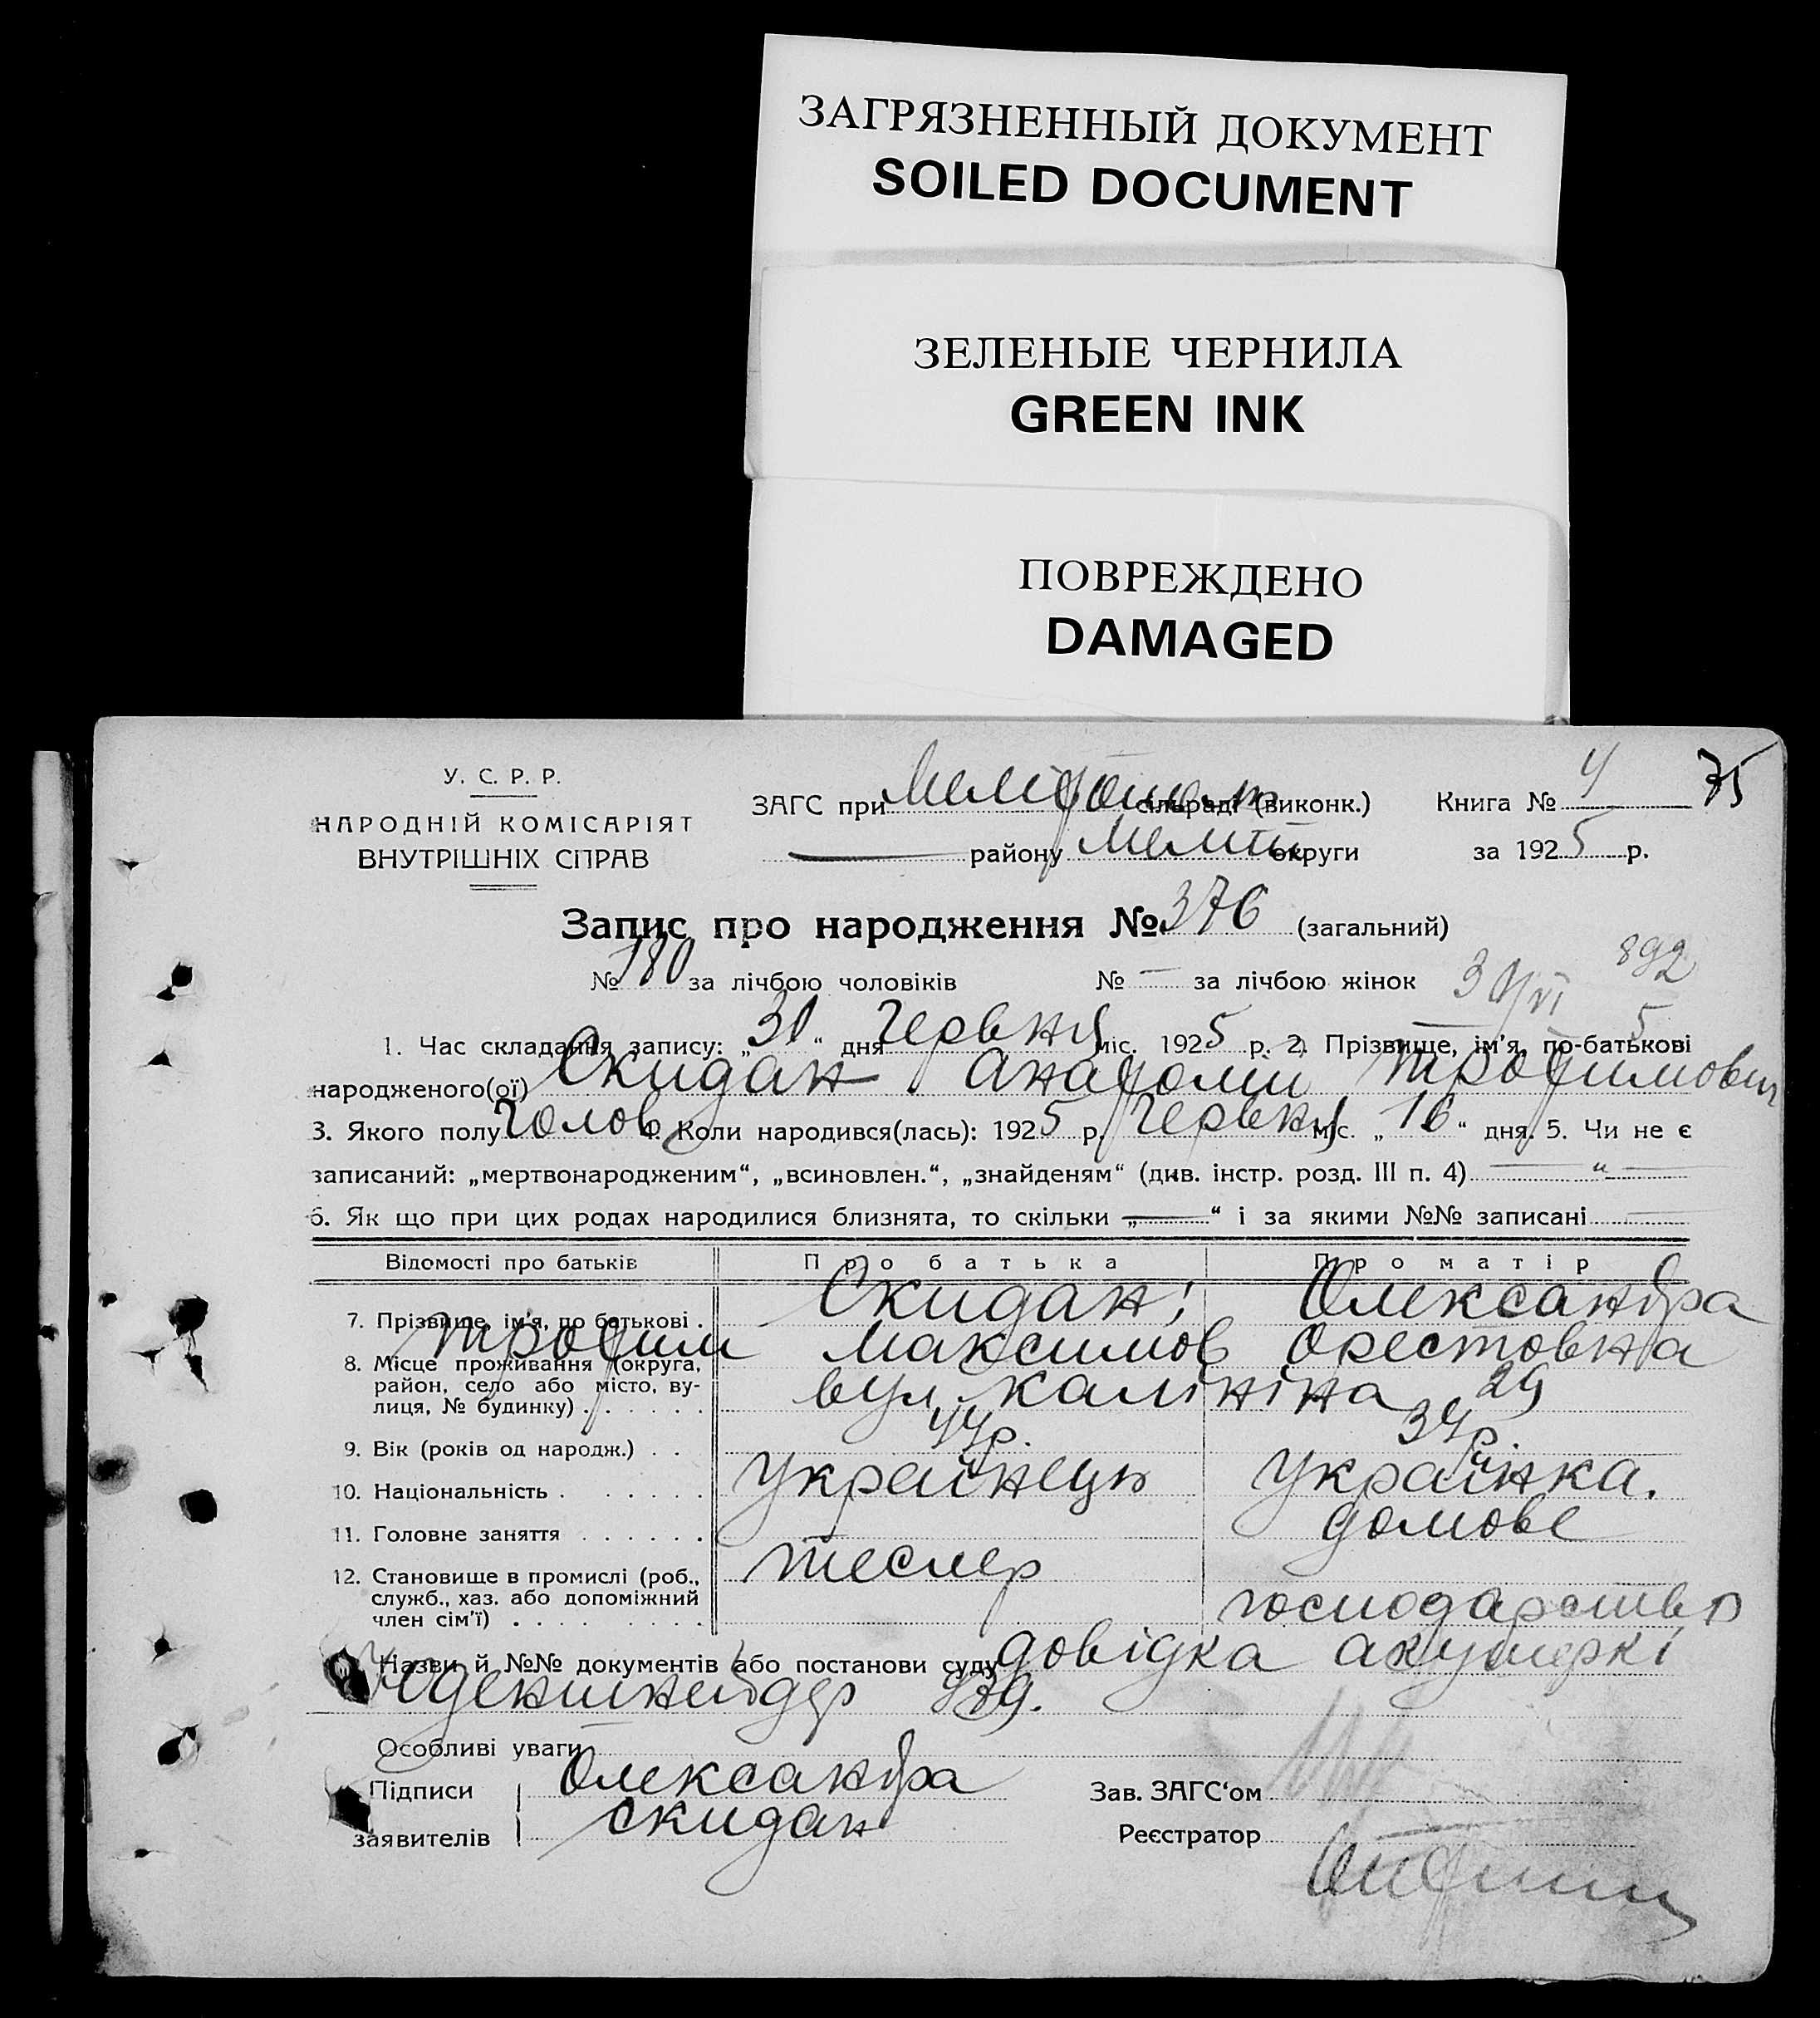 ЗАГРЯЗНЕННЫЙ ДОКУМЕНТ
SOILED DOCUMENT
ЗЕЛЕНЫЕ ЧЕРНИЛА
GREEN INK
ПОВРЕЖДЕНО
DAMAGED
У. С. Р. Р.
НАРОДНІЙ КОМІСАРІЯТ
ВНУТРІШНІХ СПРАВ
ЗАГС при Мелітопольт сільраді (виконк.) Книга № 4 75
— району Меліт округи за 1925 р.
Запис про народження № 376 (загальний)
892
№ 180 за лічбою чоловіків № — за лічбою жінок
1. Час складання запису: „30“ дня Червня міс. 1925 р. 2. Прізвище, ім'я, по-батькові
народженого(ої) Скидан Анатолій Трофимович
3. Якого полу Чолов 4. Коли народився(лась): 1925 р. Червня міс. „16“ дня. 5. Чи не є
записаний: „мертвонародженим“, „всиновлен.“, „знайденям“ (див. інстр. розд. III п. 4) — „ —
6. Як що при цих родах народилися близнята, то скільки „—“ і за якими №№ записані —
Відомості про батьків Про батька Про матір
7. Прізвище, ім'я, по батькові . Скидан; Олександра
Трофим Максимов Орестовна
8. Місце проживання (округа, район, село або місто, вулиця, № будинку) . . . . . . вул. Калініна 29
9. Вік (років од народж.) . . 44р. 34р.
10. Національність . . . . . . Українець Українка.
11. Головне заняття . . . . . . домове
12. Становище в промислі (роб., служб., хаз. або допоміжний член сім'ї) . . . . . . . . тесляр господарство
Назви й №№ документів або постанови суду довідка акушеркі
939.
Особливі уваги
Підписи заявителів Олександра
Скидан
Зав. ЗАГС'ом
Реєстратор